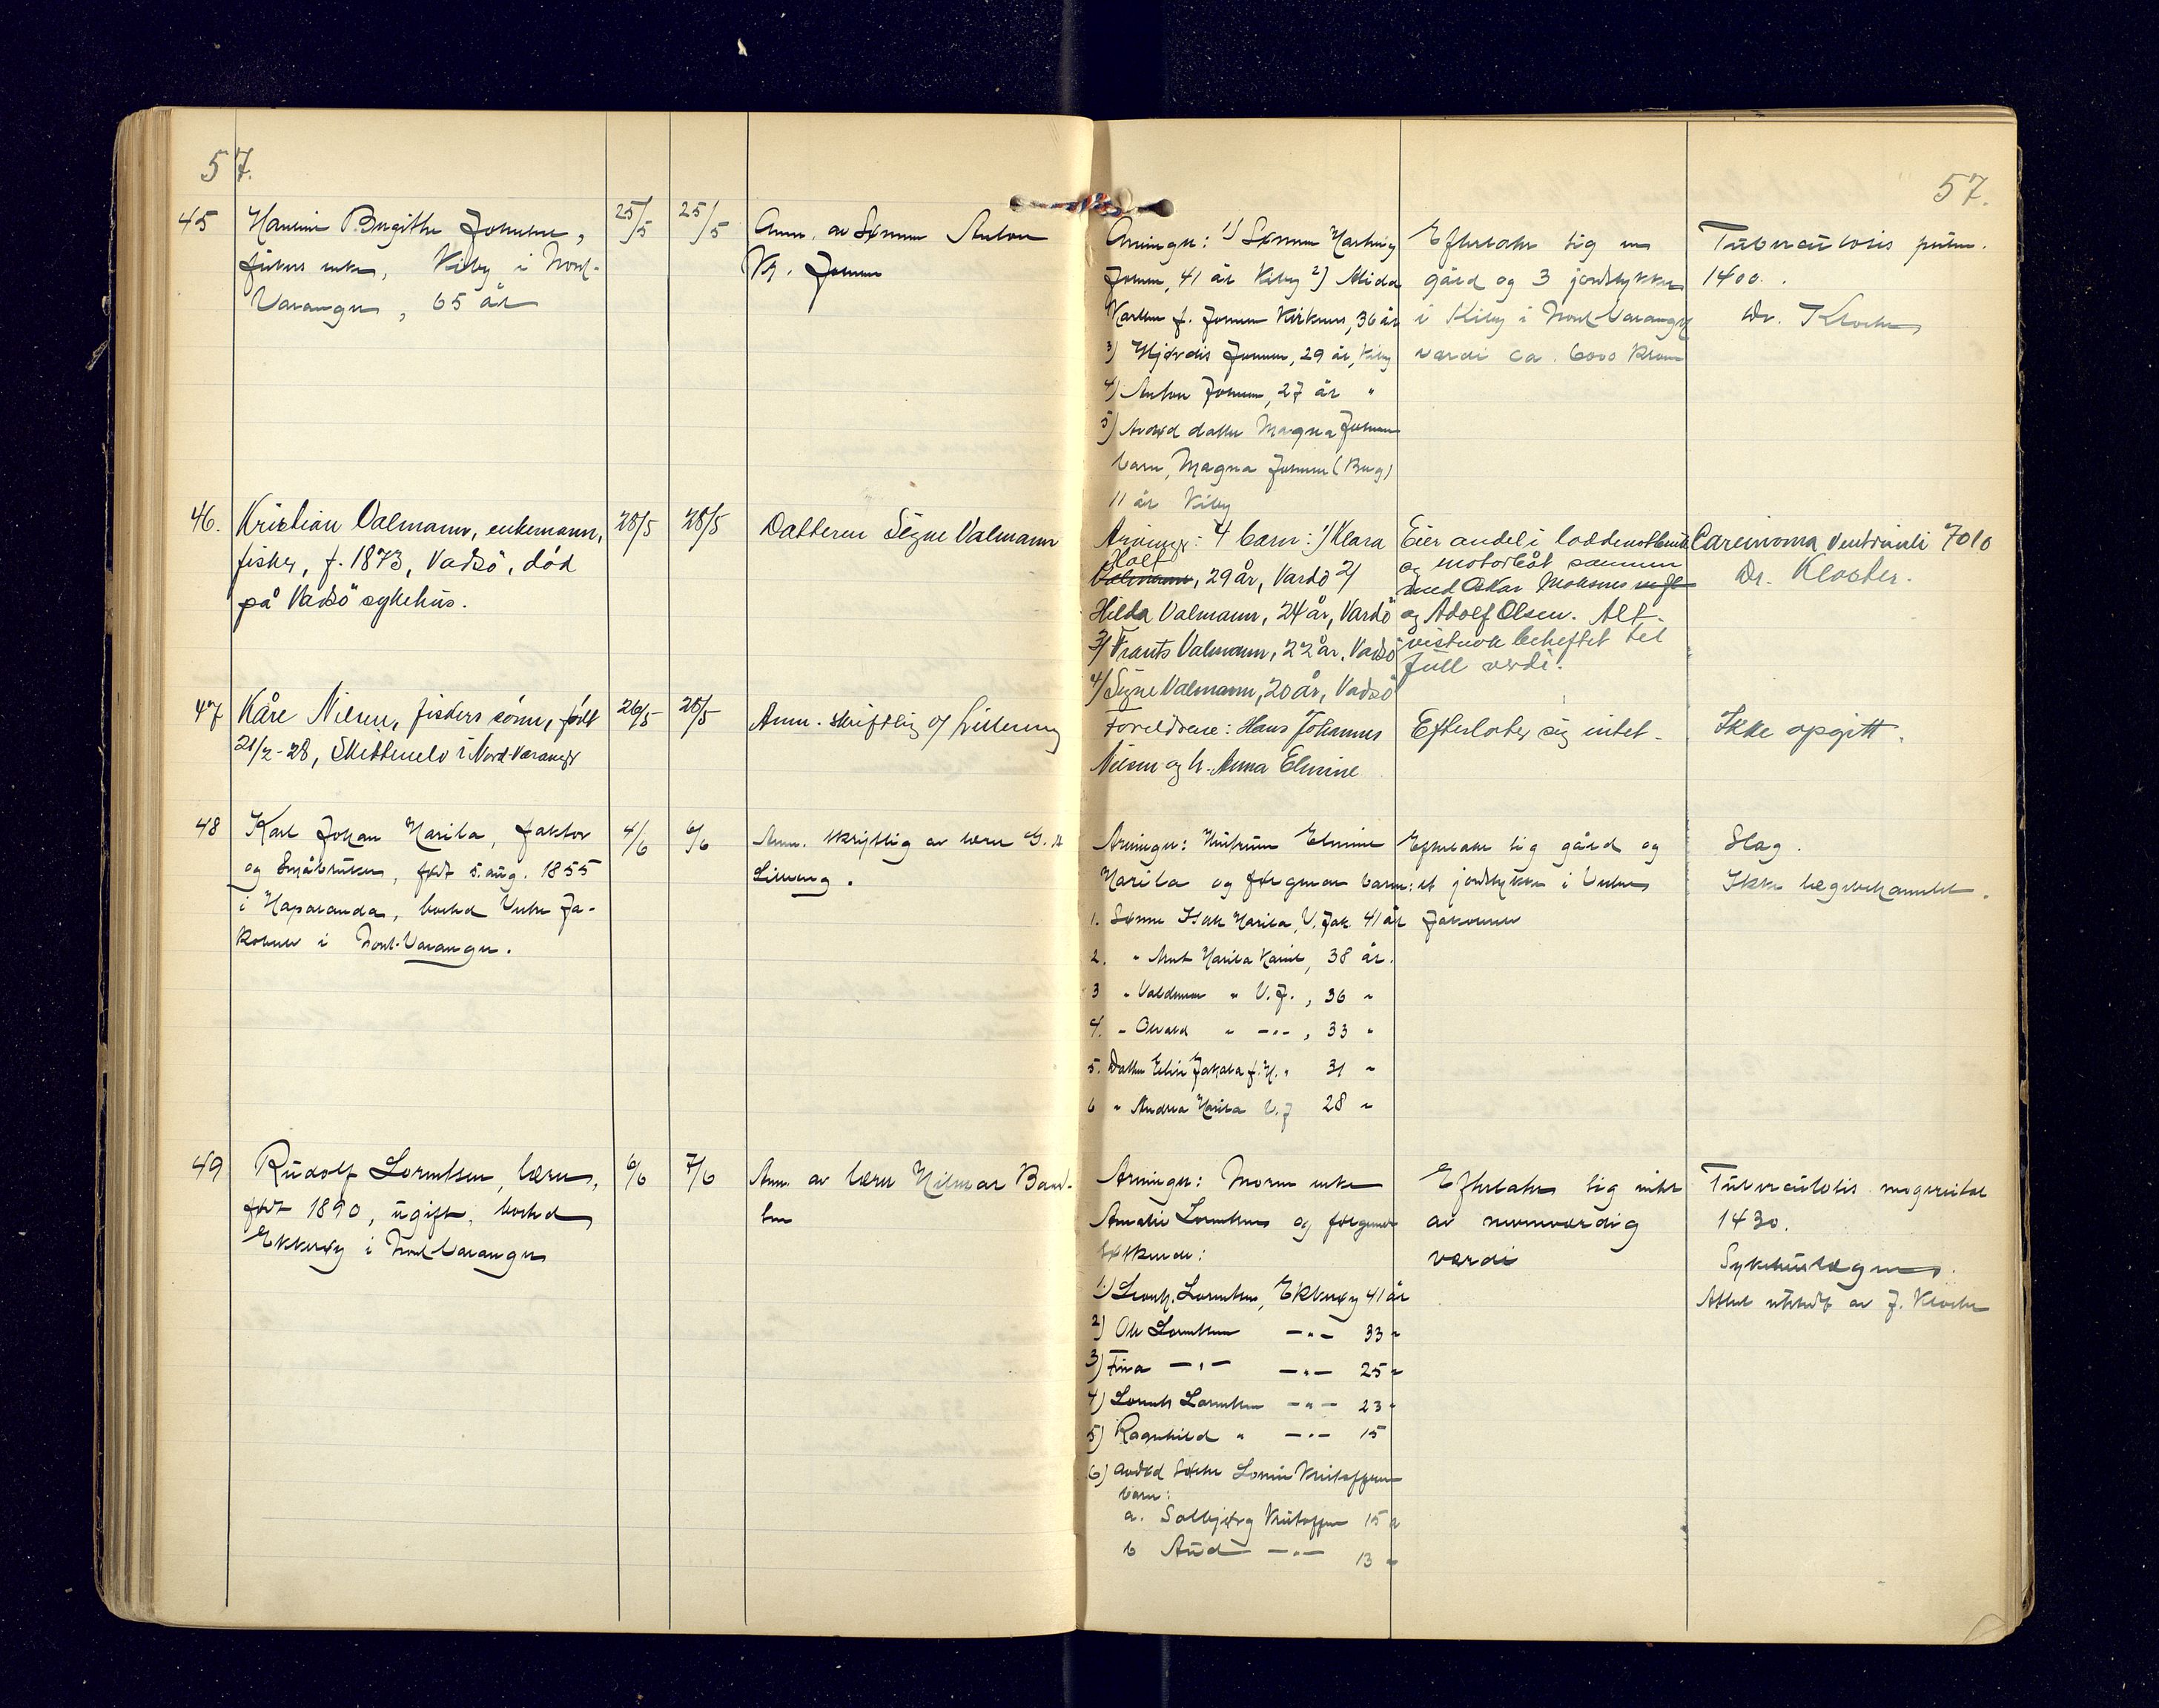 57.
57.
45
Birgithe Johnsen,
fiskers enke, Kiby i Nord-
Varanger, 65 år
25/5
25/5
Anm. av Sønnen Anton
Johnsen
Arvinger: 1) Sønnen
Johnsen, 41 år Kiby 2) Alida
f. Johnsen Kirkenes, 36 år
3) Hjørdis Johnsen, 29 år, Kiby
4) Anton Johnsen, 27 år "
5) Avdød datter Magna Johnsens
barn, Magna Johnsen (Berg)
11 år Kiby
Efterlater sig en
gård og 3 jordstykker
i Kiby i Nord-Varanger
værdi ca. 6000 kroner
Tuberculosis pulm.
1400.
Dr. Kloster
46.
Kristian Valmann, enkemann,
fisker, f. 1873, Vadsö, död
på Vadsö sykehus.
28/5
28/5
Datteren Signe Valmann
Arvinger: 4 barn: 1/ Klara
Holt
Valmann, 29 år, Vardö 2/
Hilda Valmann, 24 år, Vardö
3/ Frants Valmann, 22 år, Vadsö
4/ Signe Valmann, 20 år, Vadsö
Eier andel i
og motorbåt sammen
med Oskar
og Adolf Olsen. Alt
vistnok beheftet til
full verdi.
Carcinoma Ventriculi 7010
Dr. Kloster.
47
Kåre Nilsen, fiskers sönn, født
21/2-28, i Nord-Varanger
26/5
28/5
Anm. skriftlig af Lilleeng
Foreldrene: Hans Johannes
Nilsen og h. Anna Elmine
Efterlater sig intet.
Ikke opgitt.
48
Karl Johan Harila, faktor
og Småbruker, født 5. aug. 1855
i Haparanda, bosted Vestre Ja-
kobselv i Nord-Varanger.
4/6
6/6
Anm. skriftlig av lærer
Lilleeng.
Arvinger: Hustruen Elmine
Harila og følgende barn:
1. Sønnen Isak Harila, V. Jak. 41 år
2. " Harila 38 år.
3 " Valdemar " V.J., 36 "
4. " Oskald " -"-, 33 "
5. Datter Elise f. H. " 31 "
6 " Andrea Harila V.J 28 "
Efterlater sig gård og
et jordstykke i Vestre
Jakobselv
Slag.
Ikke lægebehandlet.
49
Rudolf Lorentsen, lærer,
født 1890, ugift, bosted
Ekkerøy i Nord-Varanger
6/6
7/6
Anm. av lærer Hilmar
Arvinger: Moren enke
Amalie Lorentsen og følgende
Søskende:
1) Lorentsen, Ekkerøy 41 år
2) Ole Lorentsen -"- 33 "
3) Fina -"- -"- 25 "
4) Lorents Lorentsen -"- 23 "
5) Ragnhild " -"- 15
6) avdød Søster Kristoffersens
barn:
a. Solbjørg Kristoffersen 15 "
b Aud -"- 13 "
Efterlater sig intet
av nevneværdig
værdi
Tuberculosis
1430.
Sykehuslægen
Attest utstedt av J. Kloster